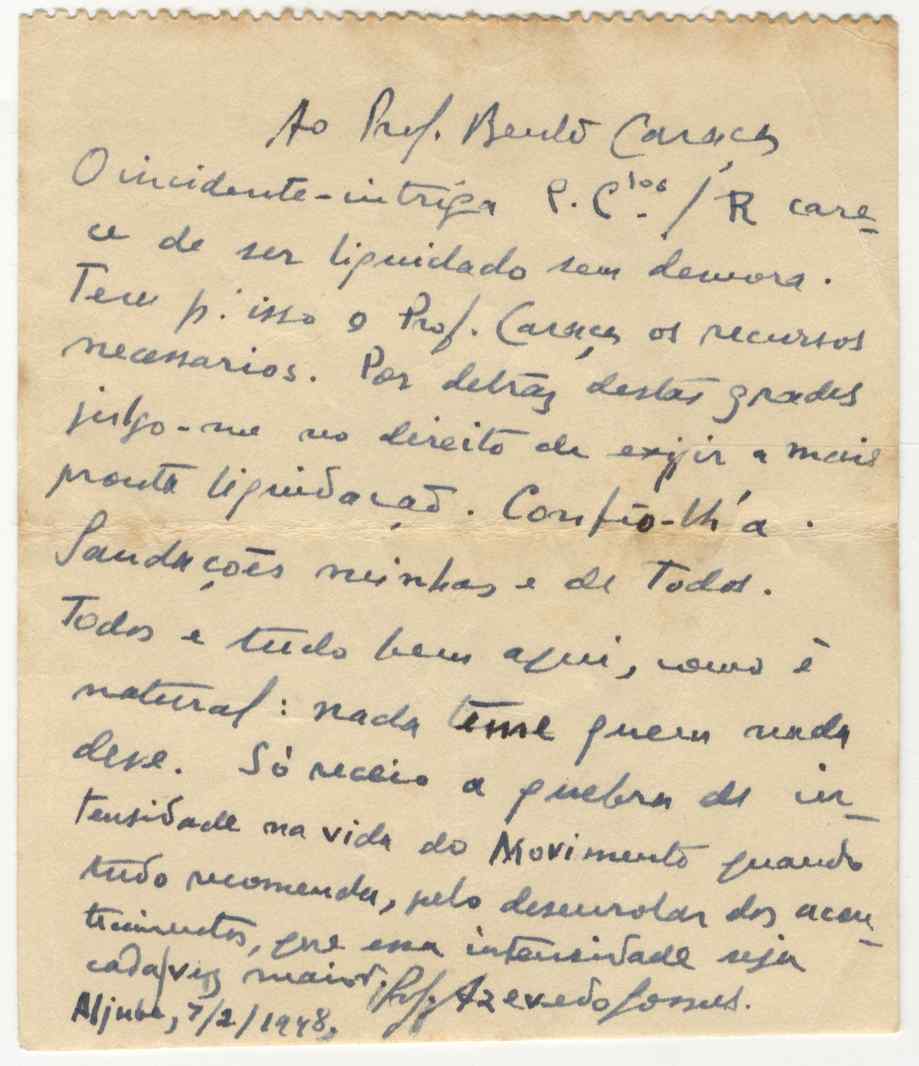 Ao Prof. Bento Caraça
O incidente-intriga P. C.los / R care-
ce de ser liquidado sem demora.
Tem p.ª isso o Prof. Caraça os recursos
necessarios. Por detrás destas grades
julgo-me no direito de exigir a mais
pronta liquidação. Confio-lh'a.
Saudações minhas e de Todos.
Todos e tudo bem aqui, como é
natural: nada teme quem nada
deve. Só receio a quebra de in-
tensidade na vida do Movimento quando
tudo recomenda, pelo desenrolar dos acon-
tecimentos, que essa intensidade seja
cada vez maior. Prof. Azevedo Gomes.
Aljube, 7/2/1948,